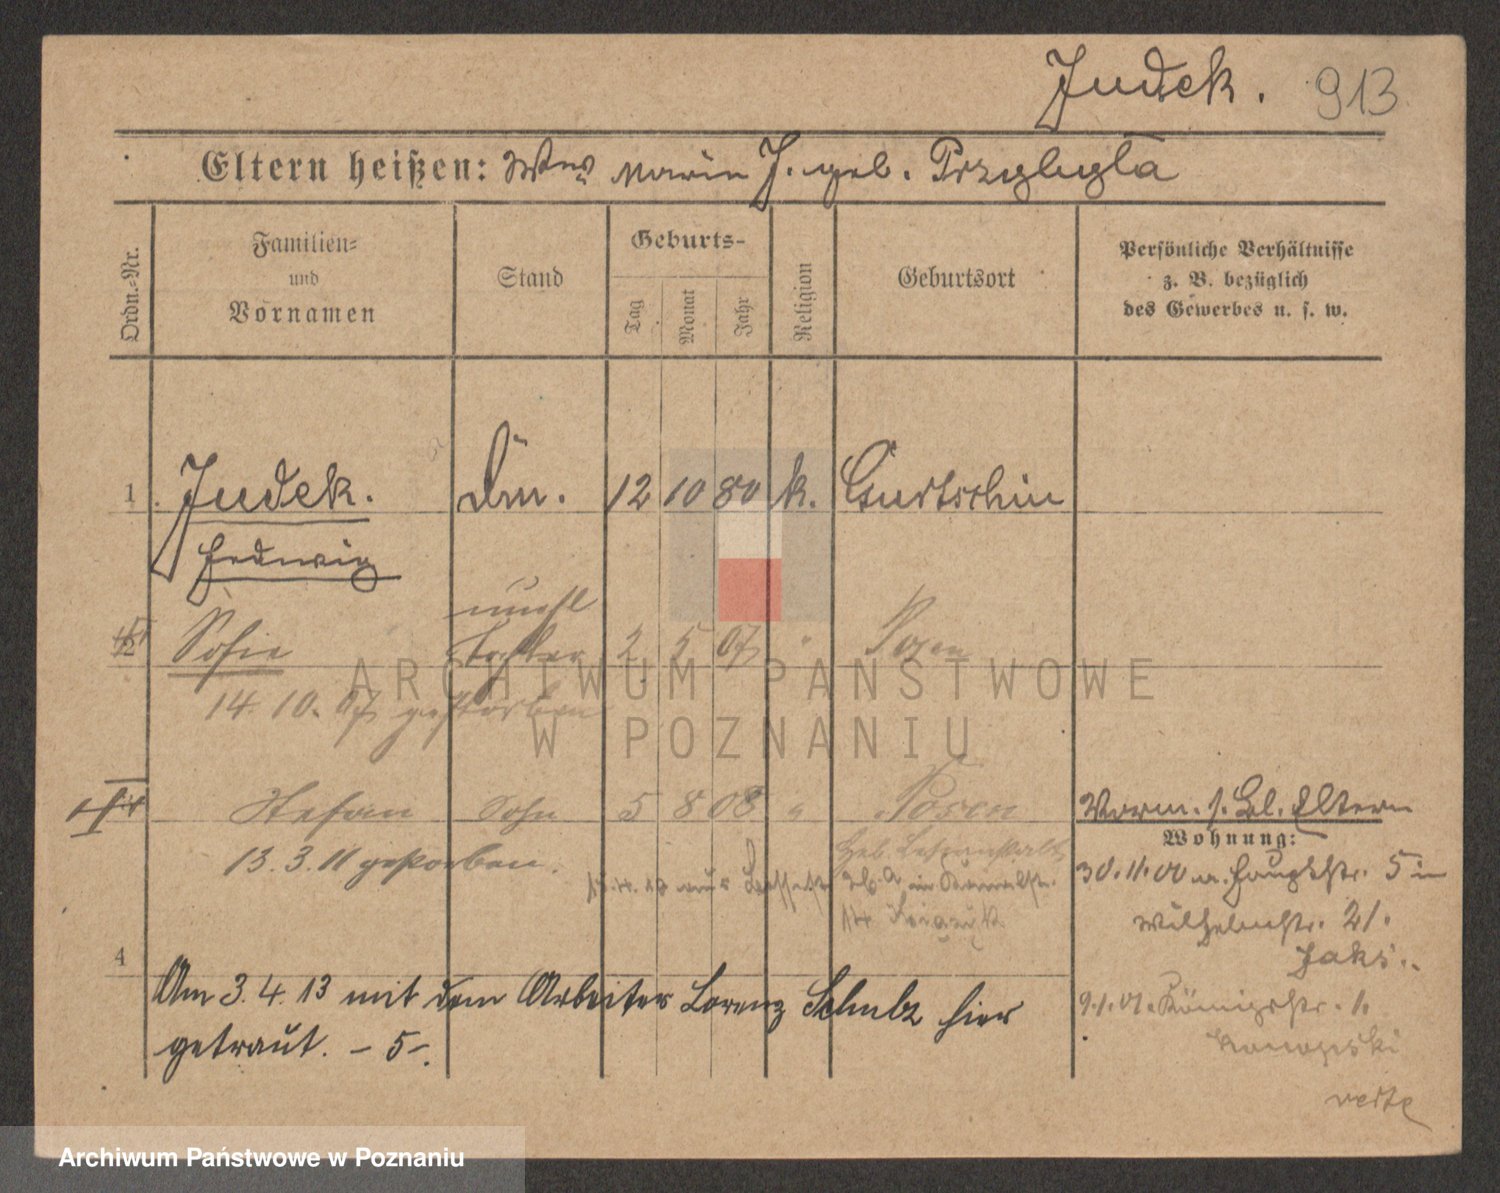 Judek. 913
Eltern heißen: Wwe Marie J. geb. Przybyla
Ordn.-Nr.
Familien-
und
Vornamen
Stand
Geburts-
Tag
Monat
Jahr
Religion
Geburtsort
Persönliche Verhältnisse
z. B. bezüglich
des Gewerbes u. s. w.
1 Judek. 12 10 80 k. Gurtschin
Hedwig
unehl
2 Sofie Tochter 2 5 07 " Posen
14. 10. 07 gestorben
Stefan Sohn 5 8 08 " Posen
13. 3. 11 gestorben.
Vorm. s. Bl. Eltern
Wohnung:
30.11.00 Hauptstr. 5 in
Wilhelmstr. 21.
Jaks.
9.1.01. Königstr. 1.
4
Am 3. 4. 13 mit dem Arbeiter Lorenz Schulz hier
getraut. – 5 –.
verte
ARCHIWUM PAŃSTWOWE
W POZNANIU
Archiwum Państwowe w Poznaniu